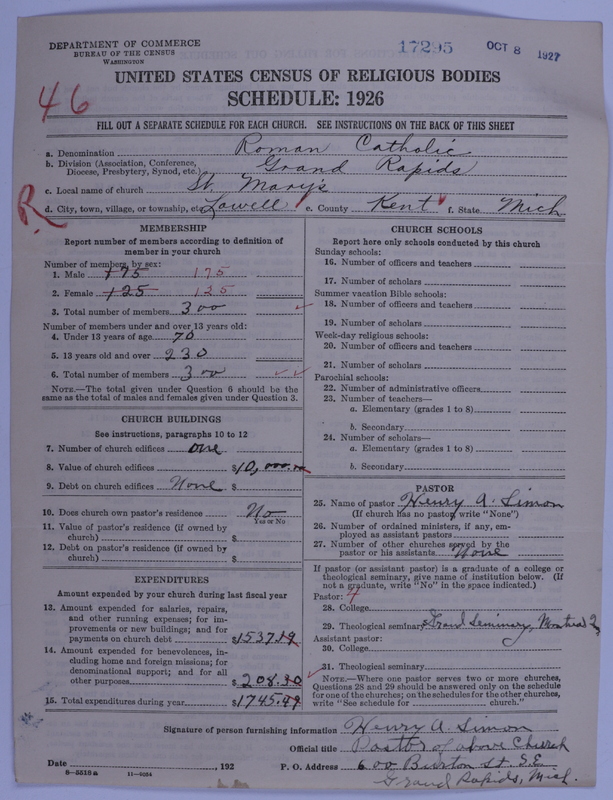 DEPARTMENT OF COMMERCE
BUREAU OF THE CENSUS
WASHINGTON
17295
OCT 8 1927
UNITED STATES CENSUS OF RELIGIOUS BODIES
SCHEDULE: 1926
46
FILL OUT A SEPARATE SCHEDULE FOR EACH CHURCH. SEE INSTRUCTIONS ON THE BACK OF THIS SHEET
a. Denomination Roman Catholic
b. Division (Association, Conference, Diocese, Presbytery, Synod, etc.) Grand Rapids
c. Local name of church St. Mary's
R
d. City, town, village, or township, etc. Lowell e. County Kent f. State Mich
MEMBERSHIP
Report number of members according to definition of
member in your church
Number of members, by sex:
1. Male 175 175
2. Female 125 125
3. Total number of members 300
Number of members under and over 13 years old:
4. Under 13 years of age 70
5. 13 years old and over 230
6. Total number of members 300
NOTE.—The total given under Question 6 should be the
same as the total of males and females given under Question 3.
CHURCH BUILDINGS
See instructions, paragraphs 10 to 12
7. Number of church edifices one
8. Value of church edifices $10,000.00
9. Debt on church edifices None $
10. Does church own pastor's residence No
Yes or No
11. Value of pastor's residence (if owned by
church) $
12. Debt on pastor's residence (if owned by
church) $
EXPENDITURES
Amount expended by your church during last fiscal year
13. Amount expended for salaries, repairs,
and other running expenses; for im-
provements or new buildings; and for
payments on church debt $1537.19
14. Amount expended for benevolences, in-
cluding home and foreign missions; for
denominational support; and for all
other purposes $208.30
15. Total expenditures during year $1745.49
CHURCH SCHOOLS
Report here only schools conducted by this church
Sunday schools:
16. Number of officers and teachers
17. Number of scholars
Summer vacation Bible schools:
18. Number of officers and teachers
19. Number of scholars
Week-day religious schools:
20. Number of officers and teachers
21. Number of scholars
Parochial schools:
22. Number of administrative officers
23. Number of teachers—
a. Elementary (grades 1 to 8)
b. Secondary
24. Number of scholars—
a. Elementary (grades 1 to 8)
b. Secondary
PASTOR
25. Name of pastor Henry A. Simon
(If church has no pastor, write "None")
26. Number of ordained ministers, if any, em-
ployed as assistant pastors
27. Number of other churches served by the
pastor or his assistants None
If pastor (or assistant pastor) is a graduate of a college or
theological seminary, give name of institution below. (If
not a graduate, write "No" in the space indicated.)
Pastor:
28. College
29. Theological seminary Grand Seminary, Montreal
Assistant pastor:
30. College
31. Theological seminary
NOTE.—Where one pastor serves two or more churches,
Questions 28 and 29 should be answered only on the schedule
for one of the churches; on the schedules for the other churches,
write "See schedule for church."
Signature of person furnishing information Henry A. Simon
Official title Pastor of above Church
Date , 192 P. O. Address 600 Burton St. S.E.
8—5518a 11—9354 Grand Rapids, Mich.